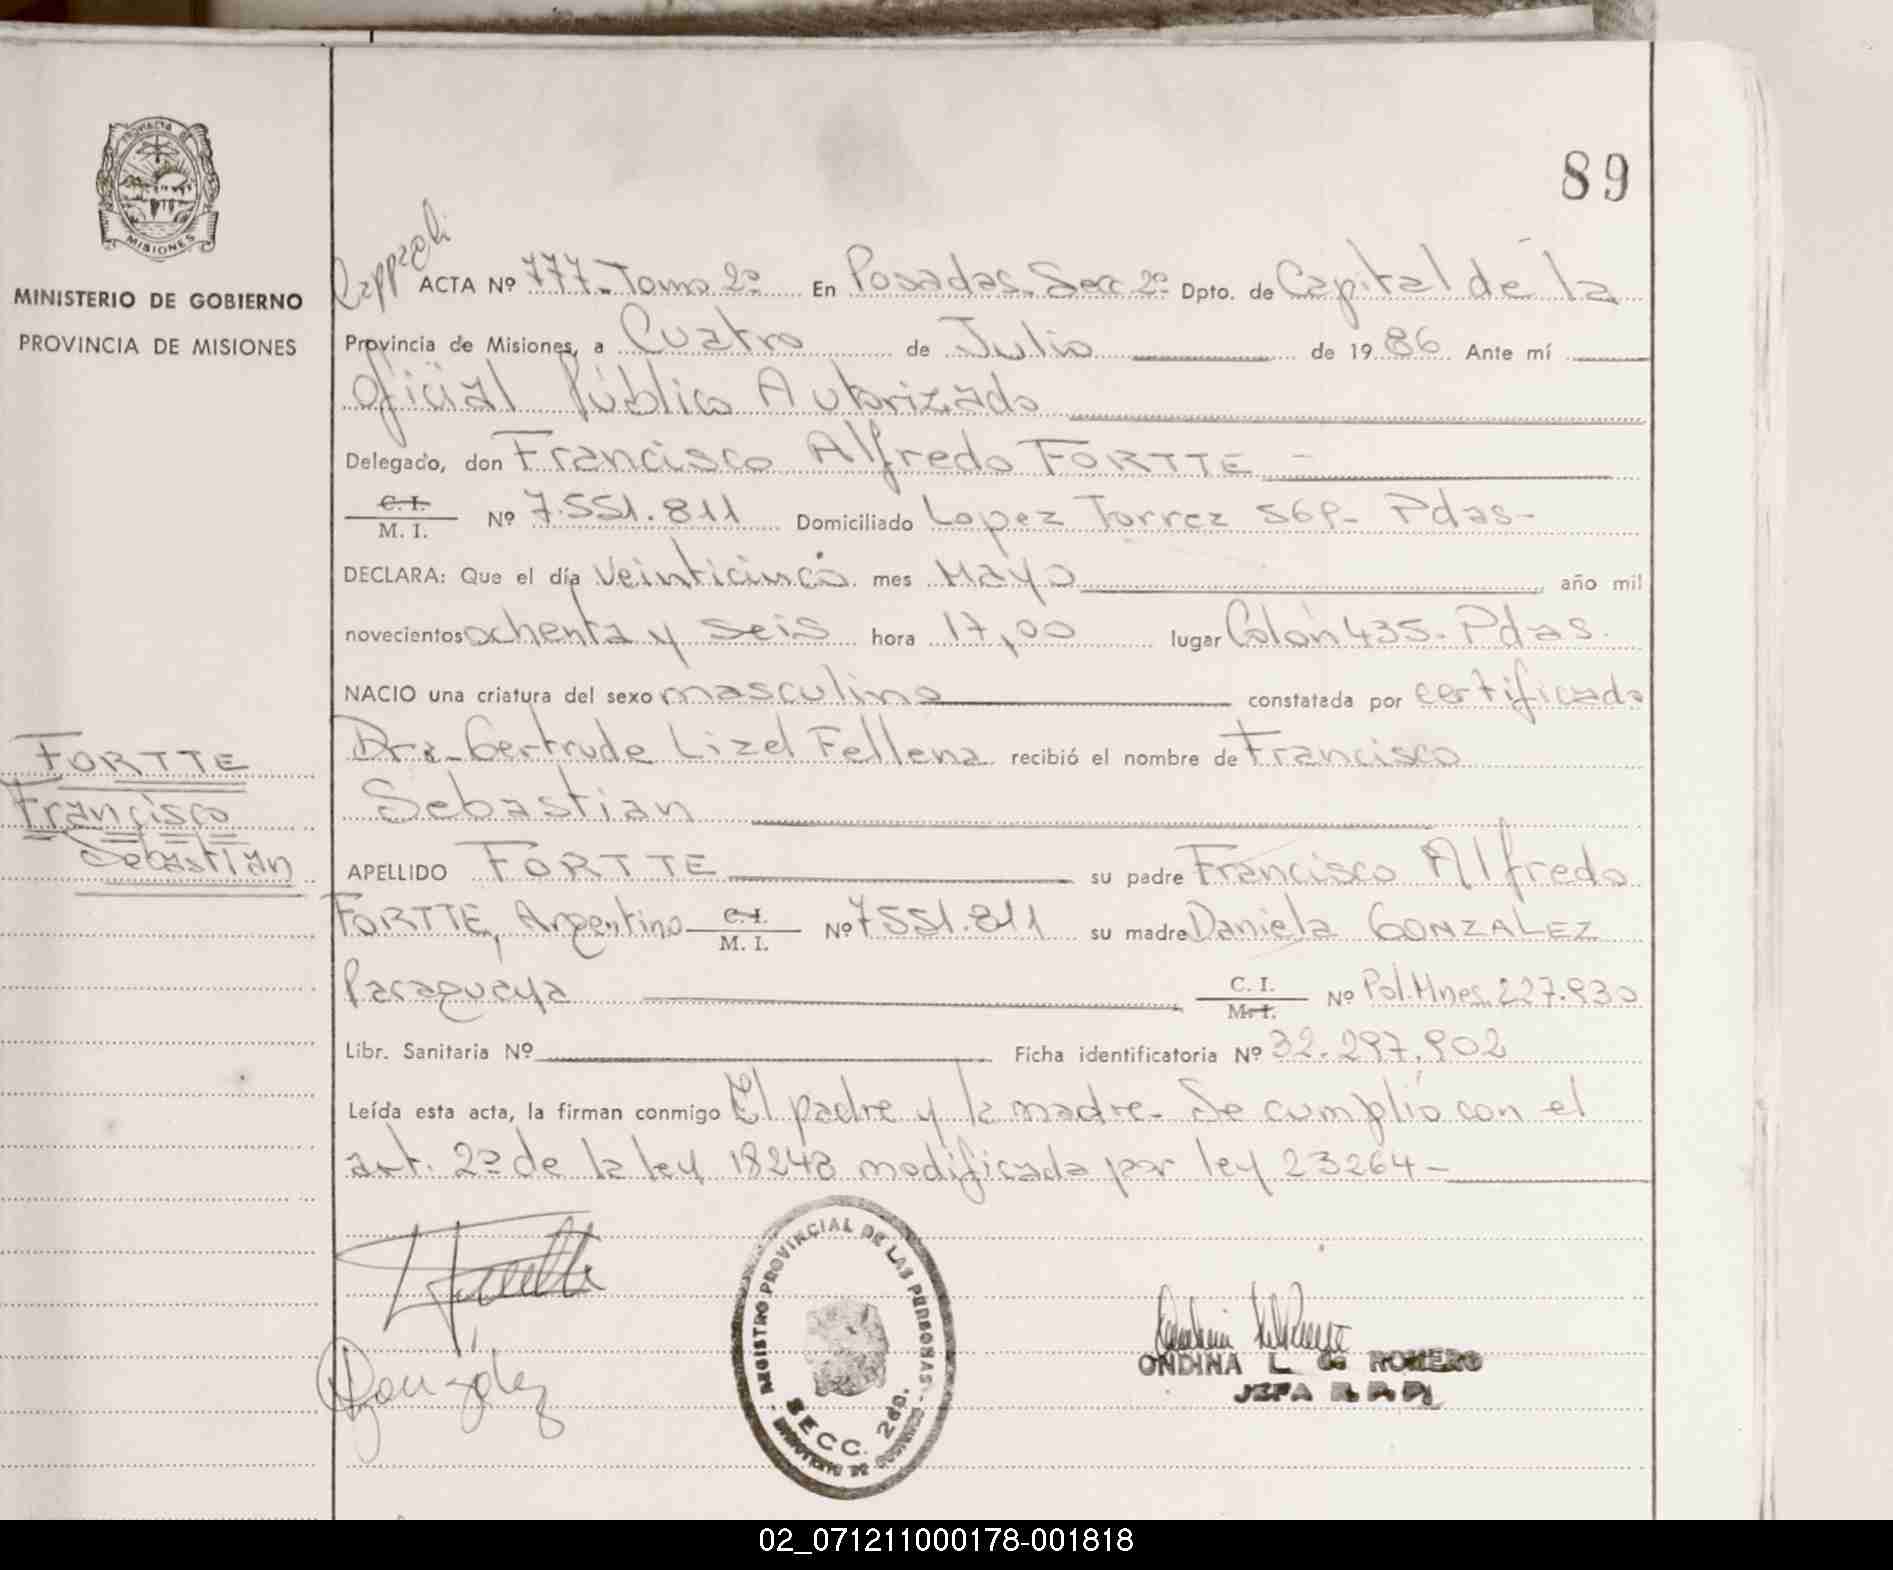 89
MINISTERIO DE GOBIERNO
PROVINCIA DE MISIONES
ACTA Nº 777-Tomo 2º En Posadas Secc 2º Dpto. de Capital de la
Provincia de Misiones, a Cuatro de Julio de 1986 Ante mí
Oficial Público Autorizado
Delegado, don Francisco Alfredo FORTTE
C. I. M. I. Nº 7.551.811 Domiciliado Lopez Torrez 569- Pdas-
DECLARA: Que el día veinticinco mes Mayo, año mil
novecientos ochenta y seis hora 17,00 lugar Colón 435- Pdas.
NACIO una criatura del sexo masculino constatada por certificado
Dra. Gertrude Lizel Fellena recibió el nombre de Francisco
Sebastian
APELLIDO FORTTE su padre Francisco Alfredo
FORTTE, Argentino C. I. M. I. Nº 7551.811 su madre Daniela GONZALEZ
Paraguaya C. I. M. I. Nº Pol. Mnes. 227.930
Libr. Sanitaria Nº Ficha identificatoria Nº 32.297.902
Leída esta acta, la firman conmigo El padre y la madre- Se cumplió con el
art. 2º de la ley 18248 modificada por ley 23264-
FORTTE
Francisco
Sebastian
González
REGISTRO PROVINCIAL DE LAS PERSONAS
SECC. 2da.
ONDINA L. de ROMERO
JEFA R. P. P.
02_071211000178-001818